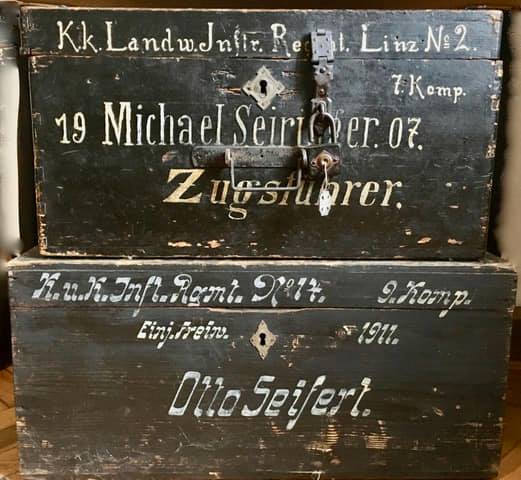 K.k. Landw. Jnftr. Regmt. Linz No 2.
7. Komp.
19 Michael Seiringer. 07.
Zugsführer.
K.u.K. Inft. Rgmt. No 14. 9. Komp.
Einj. Freiw. 1911.
Otto Seifert.